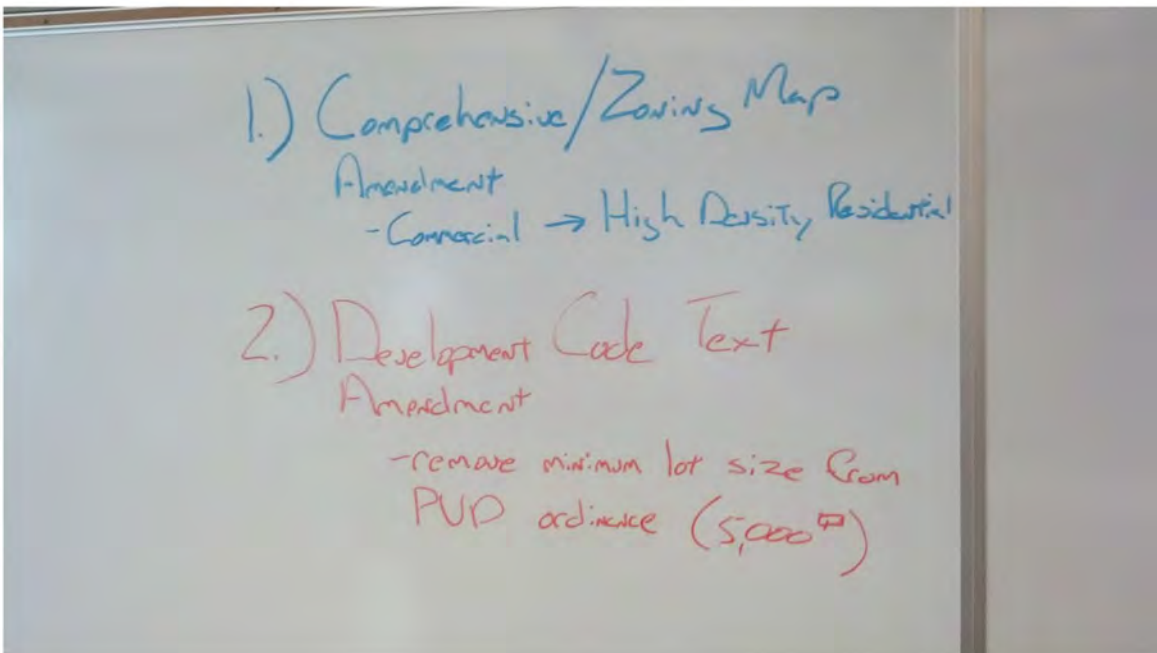 1.) Comprehensive/Zoning Map
Amendment
- Commercial → High Density Residential
2.) Development Code Text
Amendment
- remove minimum lot size from
PUD ordinance (5,000 ⏍)